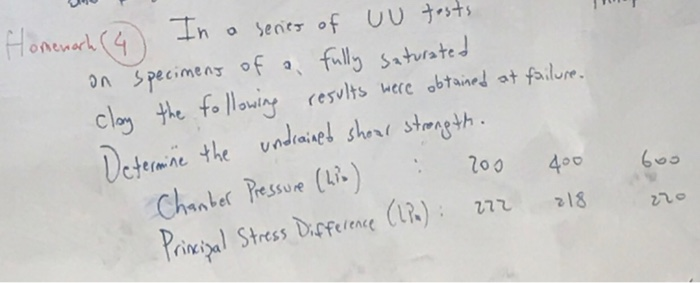 Homework (4) In a series of UU tests
on specimens of a fully saturated
clay the following results were obtained at failure.
Determine the undrained shear strength.
Chamber Pressure (kPa) : 200 400 600
Principal Stress Difference (kPa) : 222 218 220